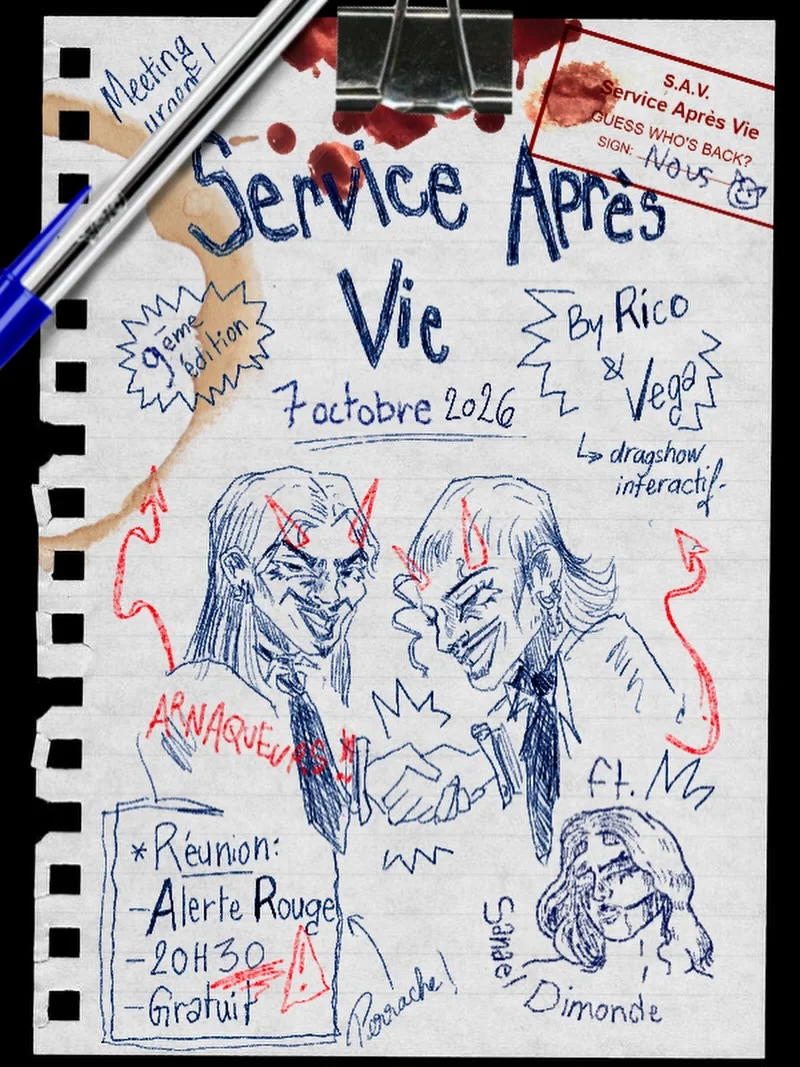 Meeting
urgent!
S.A.V.
Service Après Vie
GUESS WHO'S BACK?
SIGN: Nous
Service Après
Vie
9ème
édition
By Rico
& Vega
dragshow
interactif
7 octobre 2026
ARNAQUEURS !!
ft.
Sanael
Dimonde
* Réunion:
- Alerte Rouge
- 20H30
- Gratuit
!
Perrache!